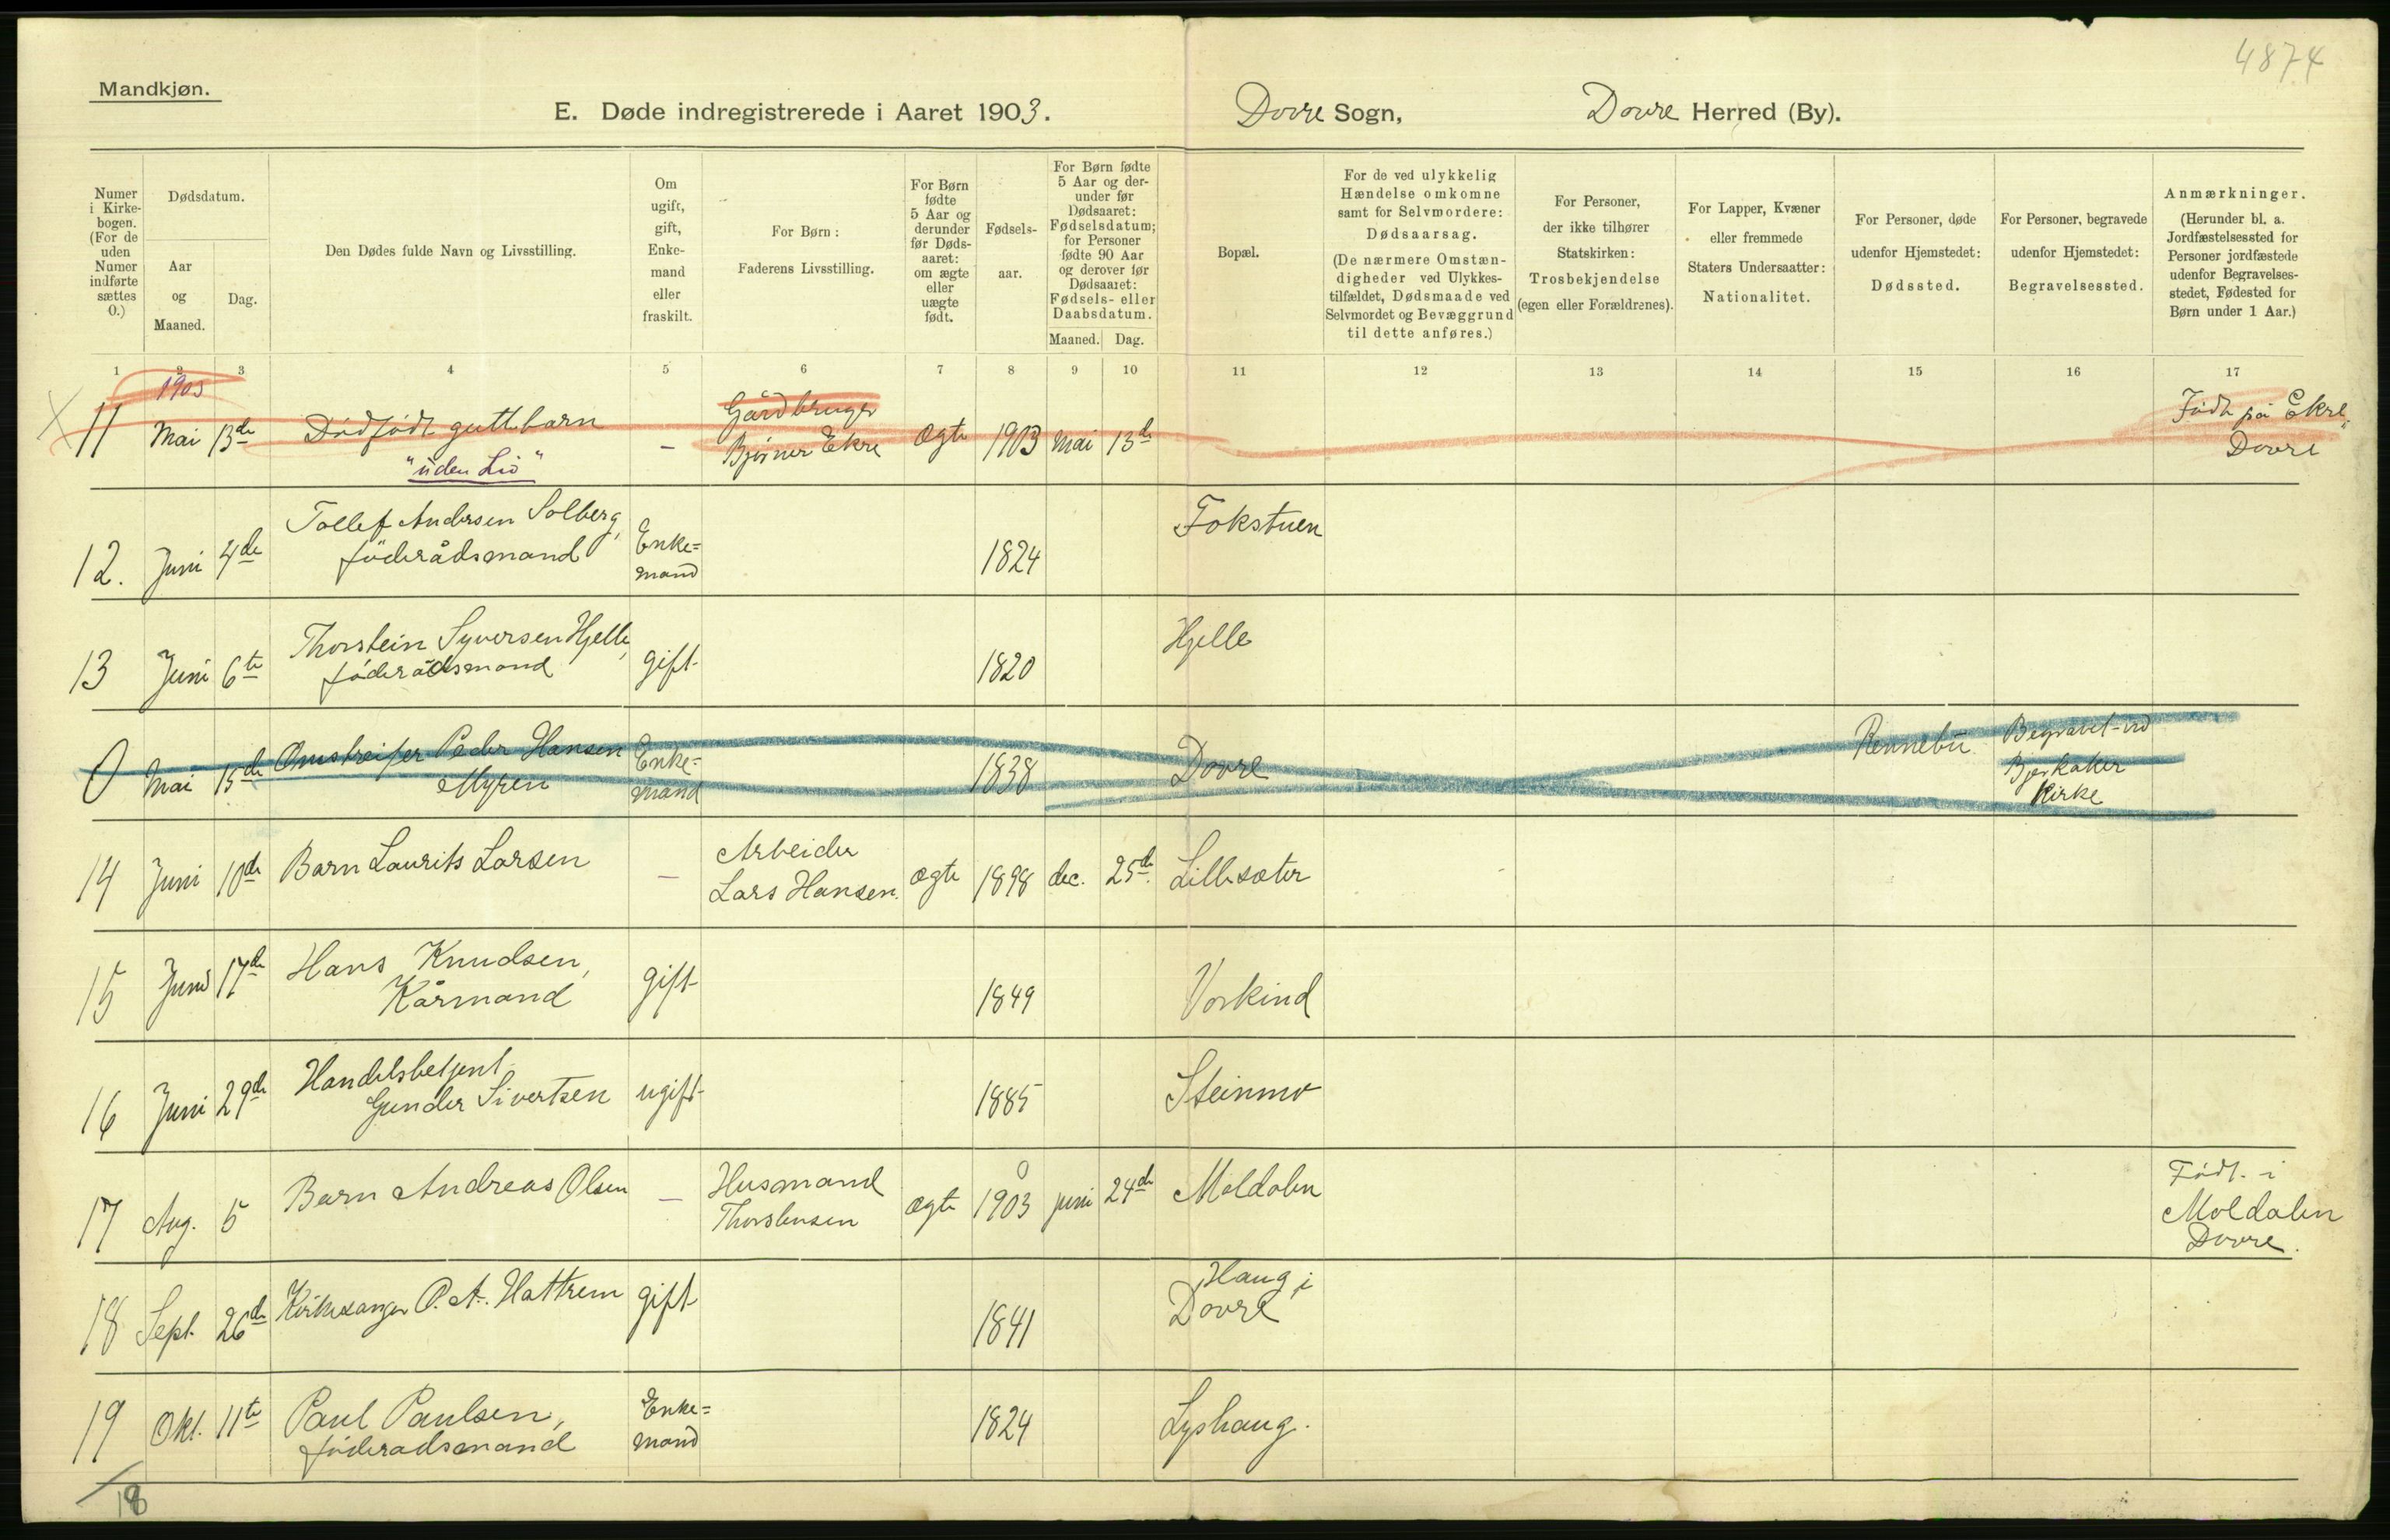 4874
Mandkjøn.
E. Døde indregistrerede i Aaret 1903. Dovre Sogn, Dovre Herred (By).
Numer i Kirke-bogen. (For de uden Numer indførte sættes 0.)
Dødsdatum.
Aar og Maaned.
Dag.
Den Dødes fulde Navn og Livsstilling.
Om ugift, gift, Enke-mand eller fraskilt.
For Børn: Faderens Livsstilling.
For Børn fødte 5 Aar og derunder før Døds-aaret: om ægte eller uægte født.
Fødsels-aar.
For Børn fødte 5 Aar og der-under før Dødsaaret: Fødselsdatum; for Personer fødte 90 Aar og derover før Dødsaaret: Fødsels- eller Daabsdatum.
Maaned. Dag.
Bopæl.
For de ved ulykkelig Hændelse omkomne samt for Selvmordere: Dødsaarsag. (De nærmere Omstæn-digheder ved Ulykkes-tilfældet, Dødsmaade ved Selvmordet og Bevæggrund til dette anføres.)
For Personer, der ikke tilhører Statskirken: Trosbekjendelse (egen eller Forældrenes).
For Lapper, Kvæner eller fremmede Staters Undersaatter: Nationalitet.
For Personer, døde udenfor Hjemstedet: Dødssted.
For Personer, begravede udenfor Hjemstedet: Begravelsessted.
Anmærkninger. (Herunder bl. a. Jordfæstelsessted for Personer jordfæstede udenfor Begravelses-stedet, Fødested for Børn under 1 Aar.)
1 2 3 4 5 6 7 8 9 10 11 12 13 14 15 16 17
1903
11 Mai 13de Dødfødt guttebarn — Gårdbruger Ægte 1903 Mai 13de Født på Ekre,
"uden Liv" Bjørner Ekre Dovre
12. Juni 4de Tollef Andersen Solberg, Enke= 1824 Fokstuen
föderådsmand mand
13 Juni 6te Thorstein Syversen Hjelle, gift 1820 Hjelle
föderådsmand
0 Mai 15de Omstreifer Peder Hansen Enke= 1838 Dovre Rennebu Begravet ved
Myren mand Bjerkaker
Kirke
14 Juni 10de Barn Laurits Larsen — Arbeider ægte 1898 dec. 25de Lillesæter
Lars Hansen.
15 Juni 17de Hans Knudsen, gift 1849 Vorkind
Kårmand
16 Juni 29de Handelsbetjent ugift 1885 Steinmo
Gunder Sivertsen
17 Aug. 5 Barn Andreas Olsen — Husmand ægte 1903 juni 24de Moldalen Født i
Thorstensen Moldalen
Dovre.
18 Sept. 26de Kirkesanger O. A. Hattrem gift 1841 Haug i
Dovre
19 Okt. 11te Paul Paulsen, Enke= 1824 Lyshaug.
föderadsmand mand
18